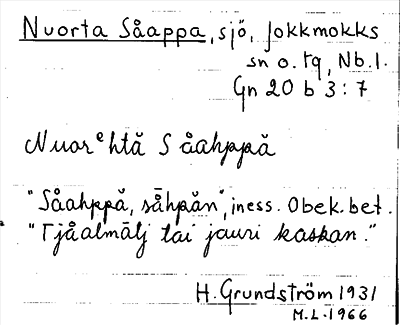 Nuorta Såappa, sjö, Jokkmokks
sn o. tq, Nb.l.
Gn 20 b 3:7
Nuorᵉhtă Såahppă
"Såahppă, såhpăn", iness. Obek. bet.
"Tjåalmālj tai jauri kaskan."
H. Grundström 1931
M.L. 1966